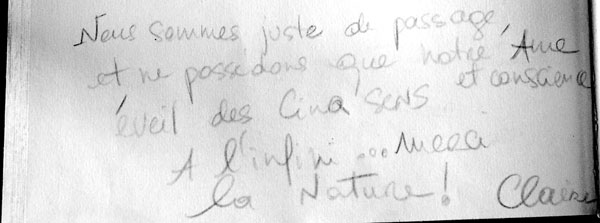 Nous sommes juste de passage,
et ne possédons que notre Âme
et conscience
éveil des Cinq sens
A l'infini ... merci
la Nature ! Claire